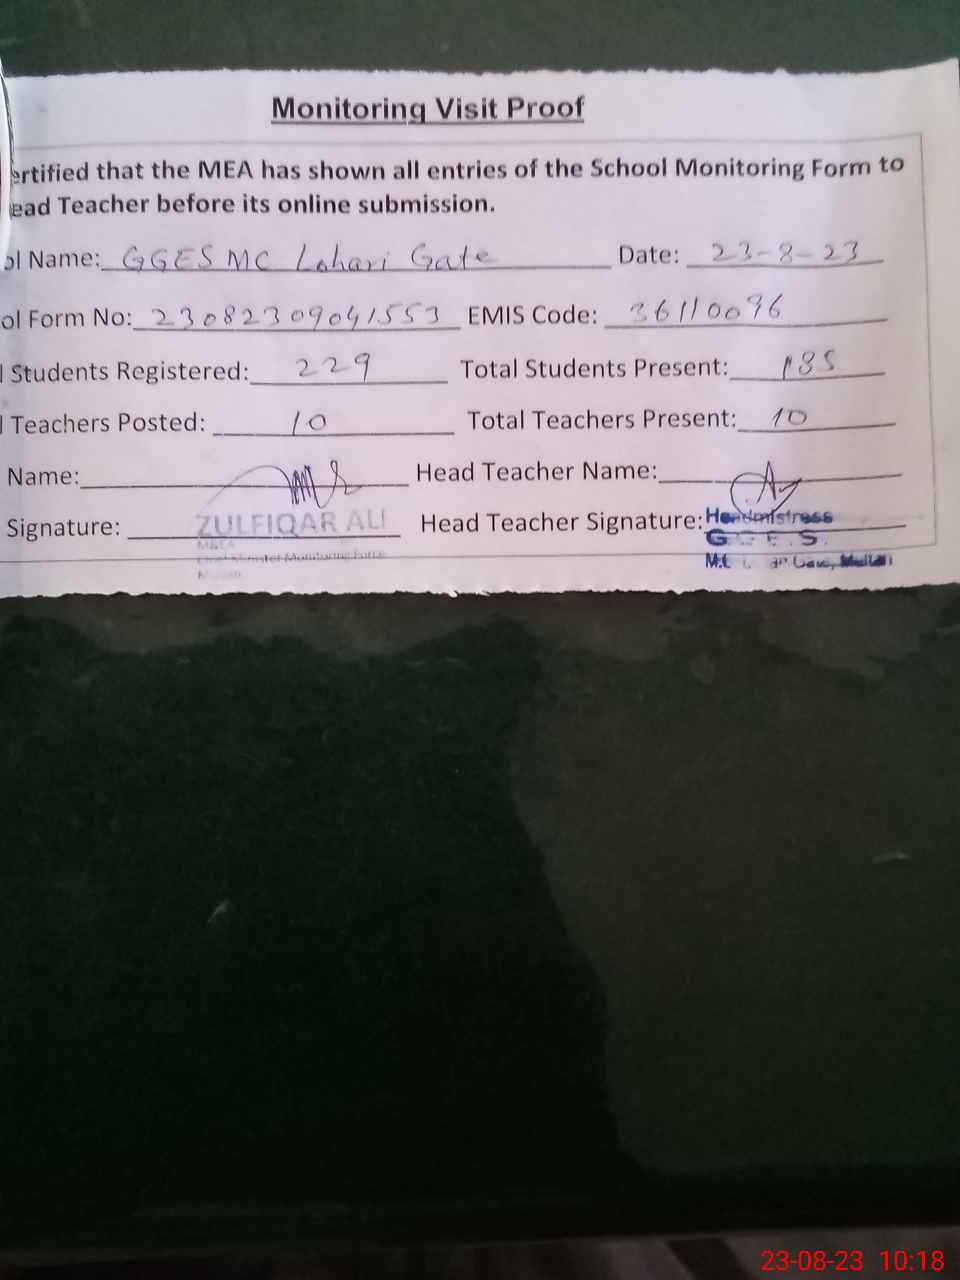 Monitoring Visit Proof
ertified that the MEA has shown all entries of the School Monitoring Form to
ead Teacher before its online submission.
ol Name: GGES MC Lohari Gate Date: 23-8-23
ol Form No: 23082309041553 EMIS Code: 36110096
l Students Registered: 229 Total Students Present: 185
l Teachers Posted: 10 Total Teachers Present: 10
Name: Head Teacher Name:
Signature: ZULFIQAR ALI Head Teacher Signature: Headmistress
G.G.E.S.
M&EA
Chief Minister Monitoring Force
M.C Gate, Multan
Multan
23-08-23 10:18